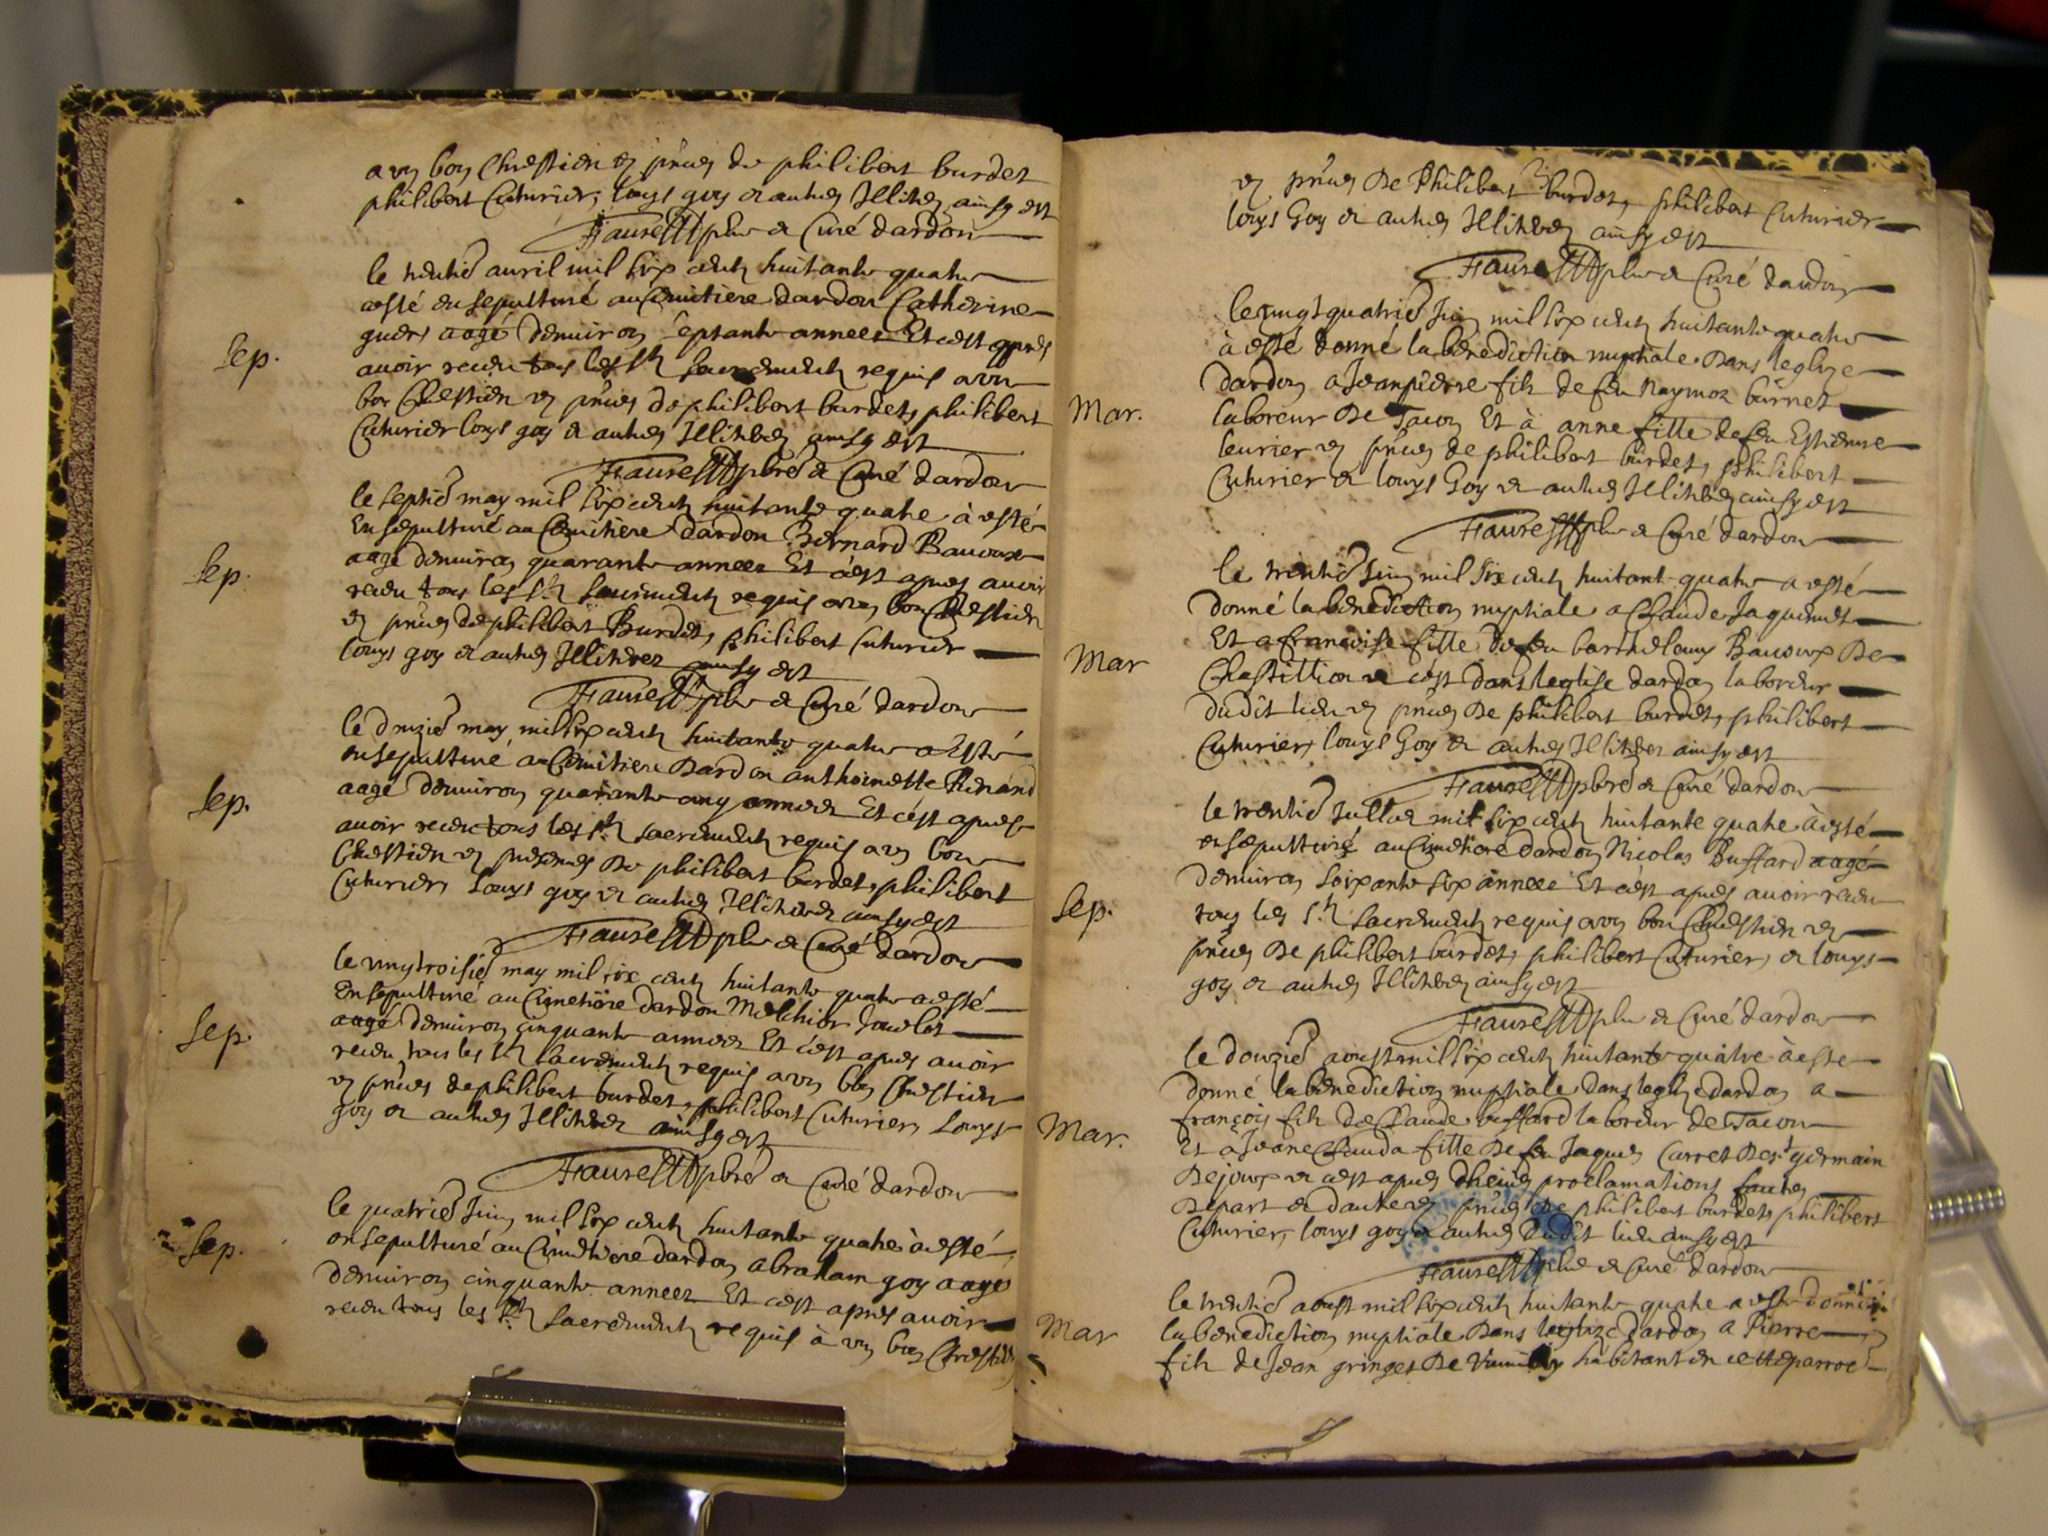 a un bon Chrestien en pñces de philibert burdet
philibert Cuturier, louys goy et autres Illitrez ainsy est
Faure pbre et Curé dardon
le trentie avril mil six cents huitante quatre
Sep.
a esté ensepulturé au Cimitiere dardon Catherine
aagé denviron septante annees Et c'est apres
avoir receu tous les Sts Sacrements requis a un
bon Chrestien en pñces de philibert burdet, philibert
Cuturier louys goy et autres Illitrez ainsy est
Faure pbre et Curé dardon
le septie may mil six cents huitante quatre à esté
Sep.
Ensepulturé au Cimitiere dardon Bernard Bauoux
aagé denviron quarante annees Et c'est apres avoir
receu tous les Sts Sacrements requis a un bon Chrestien
en pñces de philibert Burdet, philibert Cuturier
louys goy et autres Illitrez ainsy est
Faure pbre et Curé dardon
le douzie may mil six cents huitante quatre a esté
Sep.
ensepulturé au Cimitiere dardon anthoinette Renand
aagé denviron quarante cinq annees Et c'est apres
avoir receu tous les Sts Sacrements requis a un bon
Chrestien en presences de philibert burdet, philibert
Cuturier, louys goy et autres Illitrez ainsy est
Faure pbre et Curé dardon
le vingtroisie may mil six cents huitante quatre a esté
Sep.
Ensepulturé au Cimetiere dardon Melchior
aagé denviron cinquante annees Et c'est apres avoir
receu tous les Sts Sacrements requis a un bon Chrestien
en pñces de philibert burdet, philibert Cuturier, Louys
goy et autres Illitrez ainsy est
Faure pbre et Curé dardon
le quatrie Juin mil six cents huitante quatre à esté
Sep.
ensepulturé au Cimetiere dardon abraham goy aagé
denviron cinquante annees Et c'est apres avoir
receu tous les Sts Sacrements requis à un bon Chrestien
en pñces De Philibert burdet, philibert Cuturier
louys Goy et autres Illitrez ainsy est
Faure pbre et Curé dardon
le vingt quatrie Juin mil six cents huitante quatre
à esté donné la benediction nuptiale Dans leglize
Mar.
dardon a Jeanpierre fils de feu Raymoz burnet
laboreur De Tacon Et à anne fille de feu Estienne
leurier en pñces de philibert burdet, philibert
Cuturier et louys Goy et autres Illitrez ainsy est
Faure pbre et Curé dardon
le trentie Juin mil six cents huitante quatre a esté
donné la benediction nuptiale a Claude Jaquemet
Mar
Et a francoise fille de feu barthelemy Bauoux De
Chastillion et c'est Dans leglise dardon laboreur
dudit lieu en pñces De philibert burdet, philibert
Cuturier, louys Goy et autres Illitrez ainsy est
Faure pbre et Curé dardon
le trentie Jullet mil six cents huitante quatre à esté
ensepulturé au Cimetiere dardon Nicolas Buffard aagé
denviron soixante six annees Et c'est apres avoir receu
Sep.
tous les Sts Sacrements requis a un bon Chrestien en
pñces De philibert burdet, philibert Cuturier, et louys
goy et autres Illitrez ainsy est
Faure pbre et Curé dardon
le douzie aoust mil six cents huitante quatre à esté
donné la benediction nuptiale dans leglize dardon a
Mar.
françois fils de Claude buffard laboreur de Tacon
Et a Jeane Clauda fille De feu Jaques Carret De St germain
De joux et c'est apres proclamations faites
De part et dautre en pñces De philibert burdet, philibert
Cuturier, louys goy et autres Dudit lieu ainsy est
Faure pbre et Curé dardon
le trentie aoust mil six cents huitante quatre a esté donné
Mar
la benediction nuptiale Dans leglize dardon a Pierre
fils de Jean gringet De habitant en cette parroc